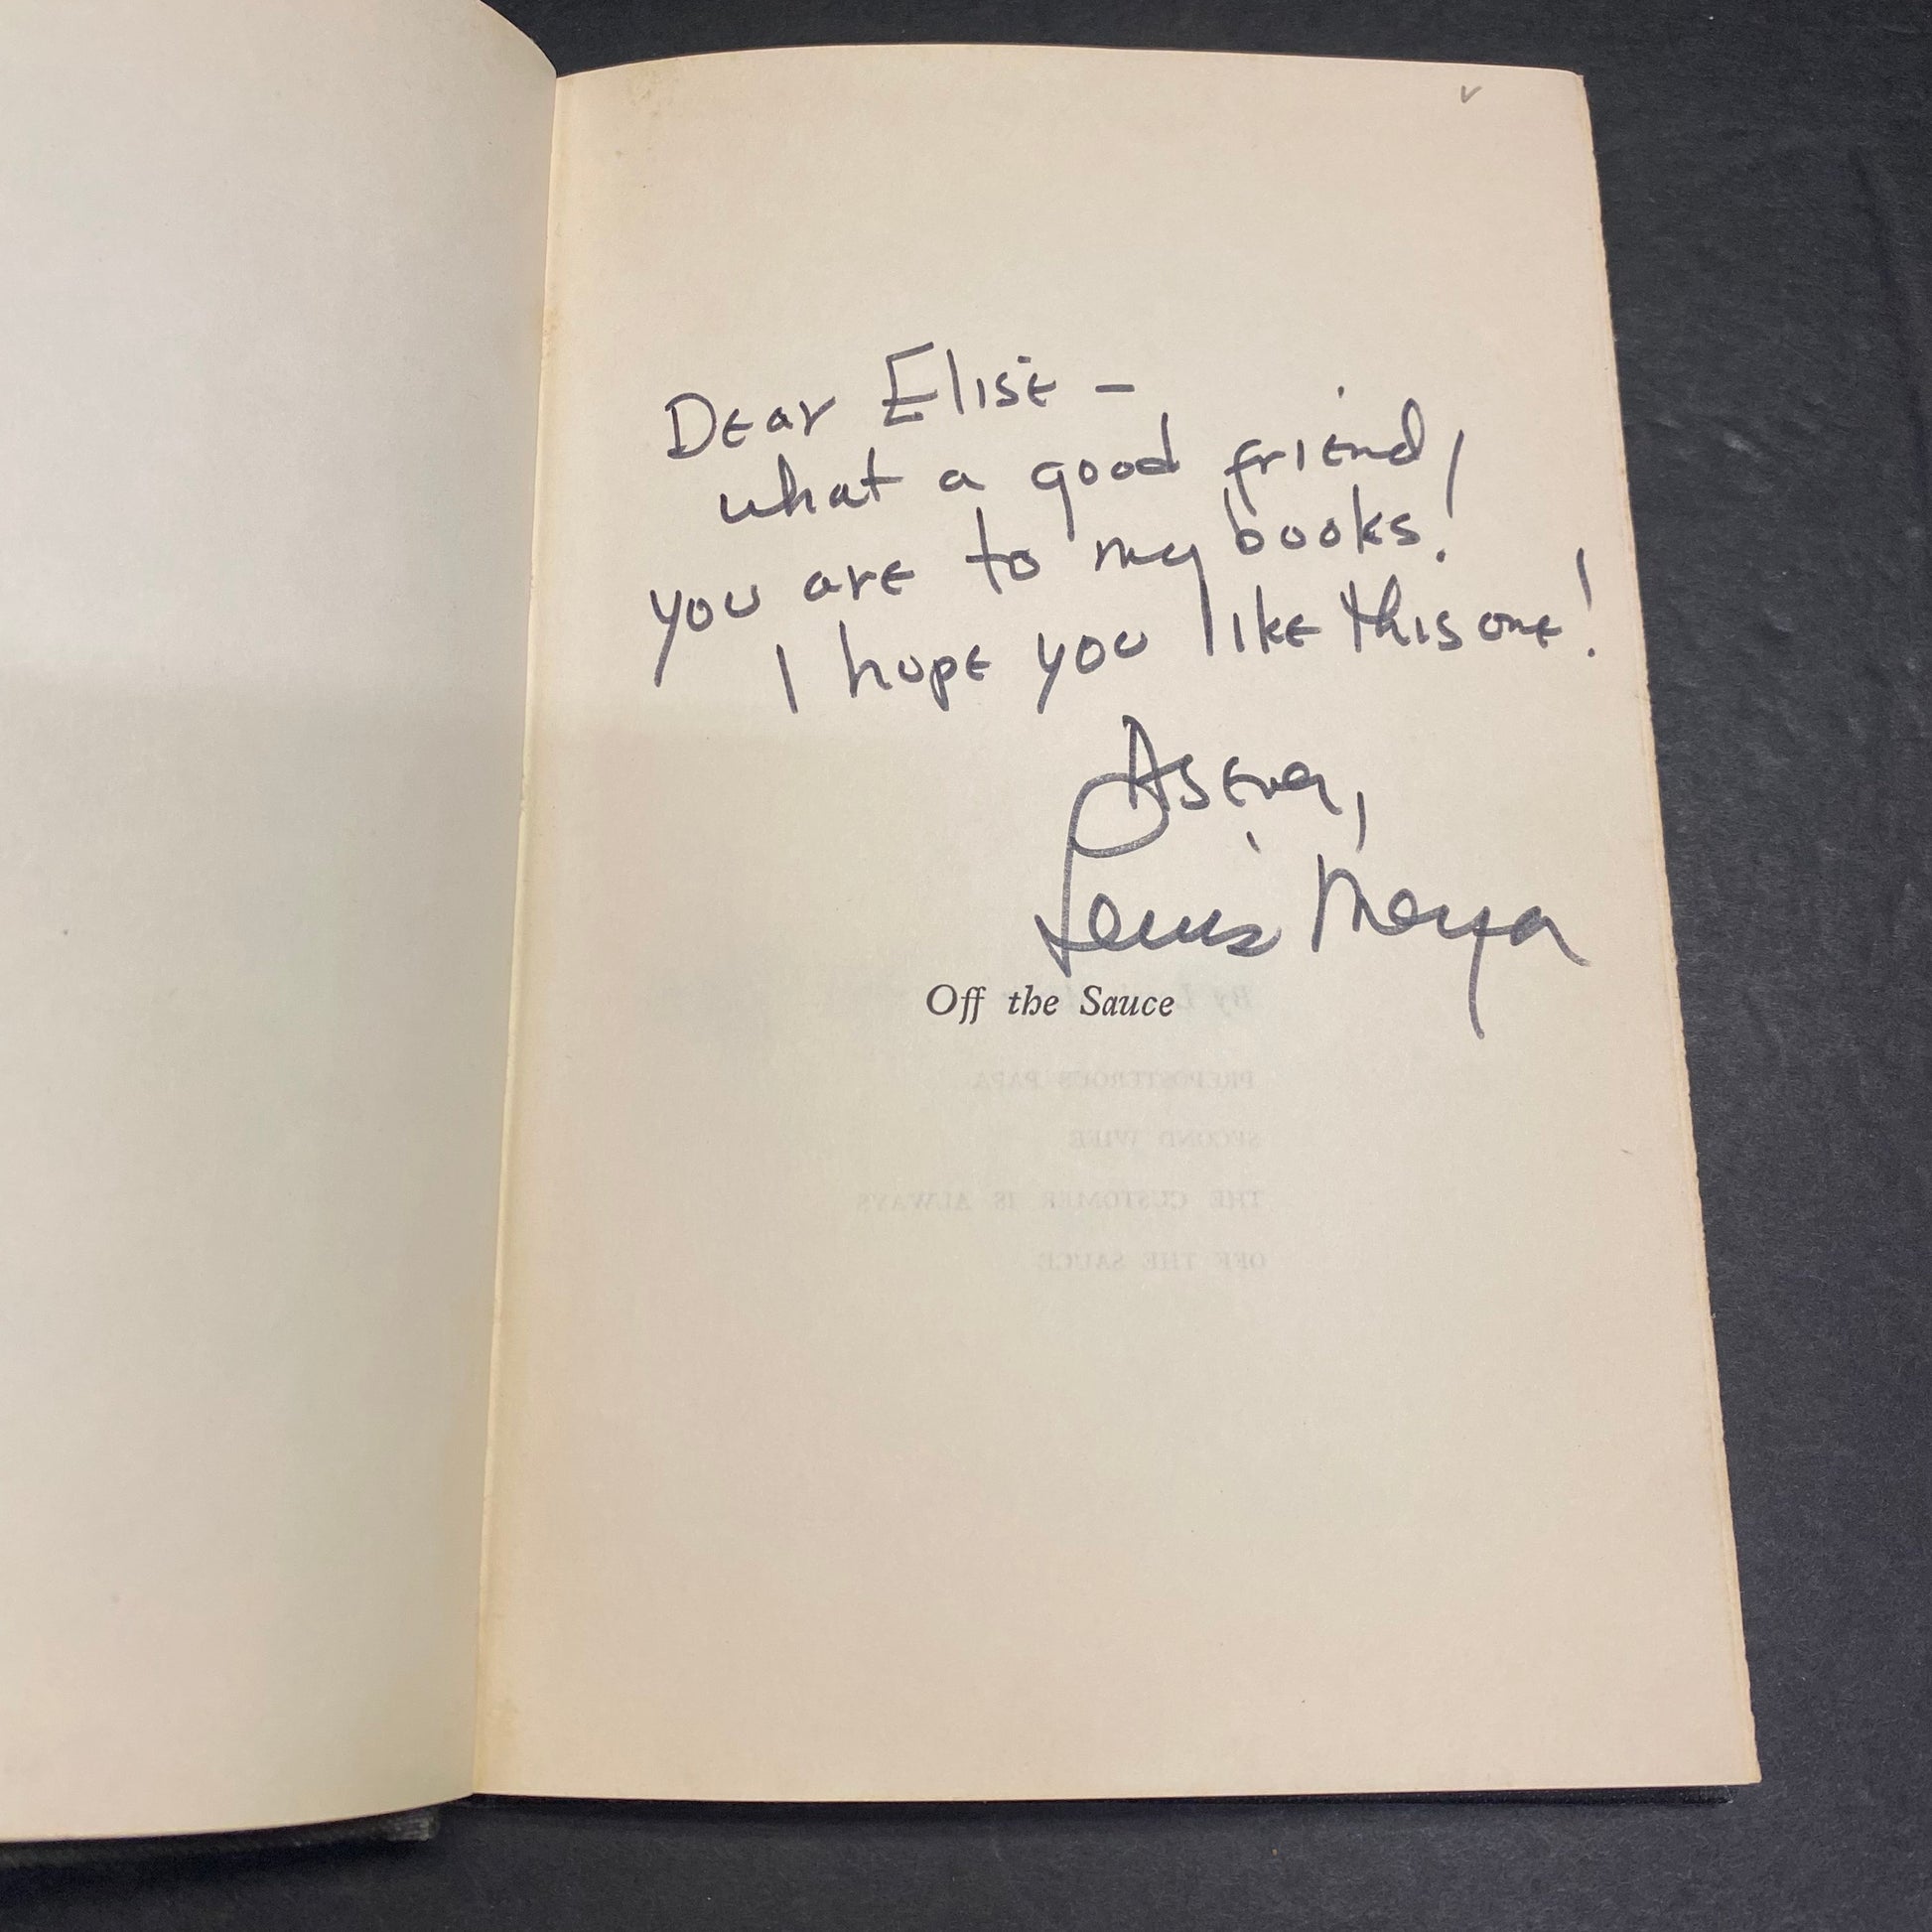 Dear Elise –
what a good friend,
you are to my books!
I hope you like this one!
As ever,
Lewis Meyer
Off the Sauce
By L
PREPOSTEROUS PAPA
SECOND WIFE
THE CUSTOMER IS ALWAYS
OFF THE SAUCE